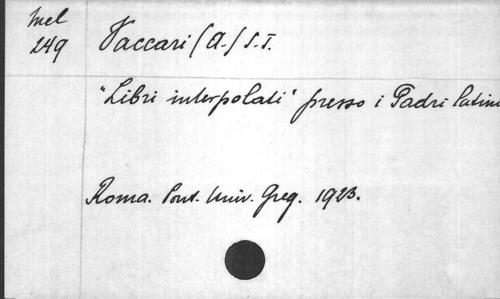 Mel
249
Vaccari (A.) S.I.
"Libri interpolati" presso i Padri latini
Roma. Pont. Univ. Greg. 1923.